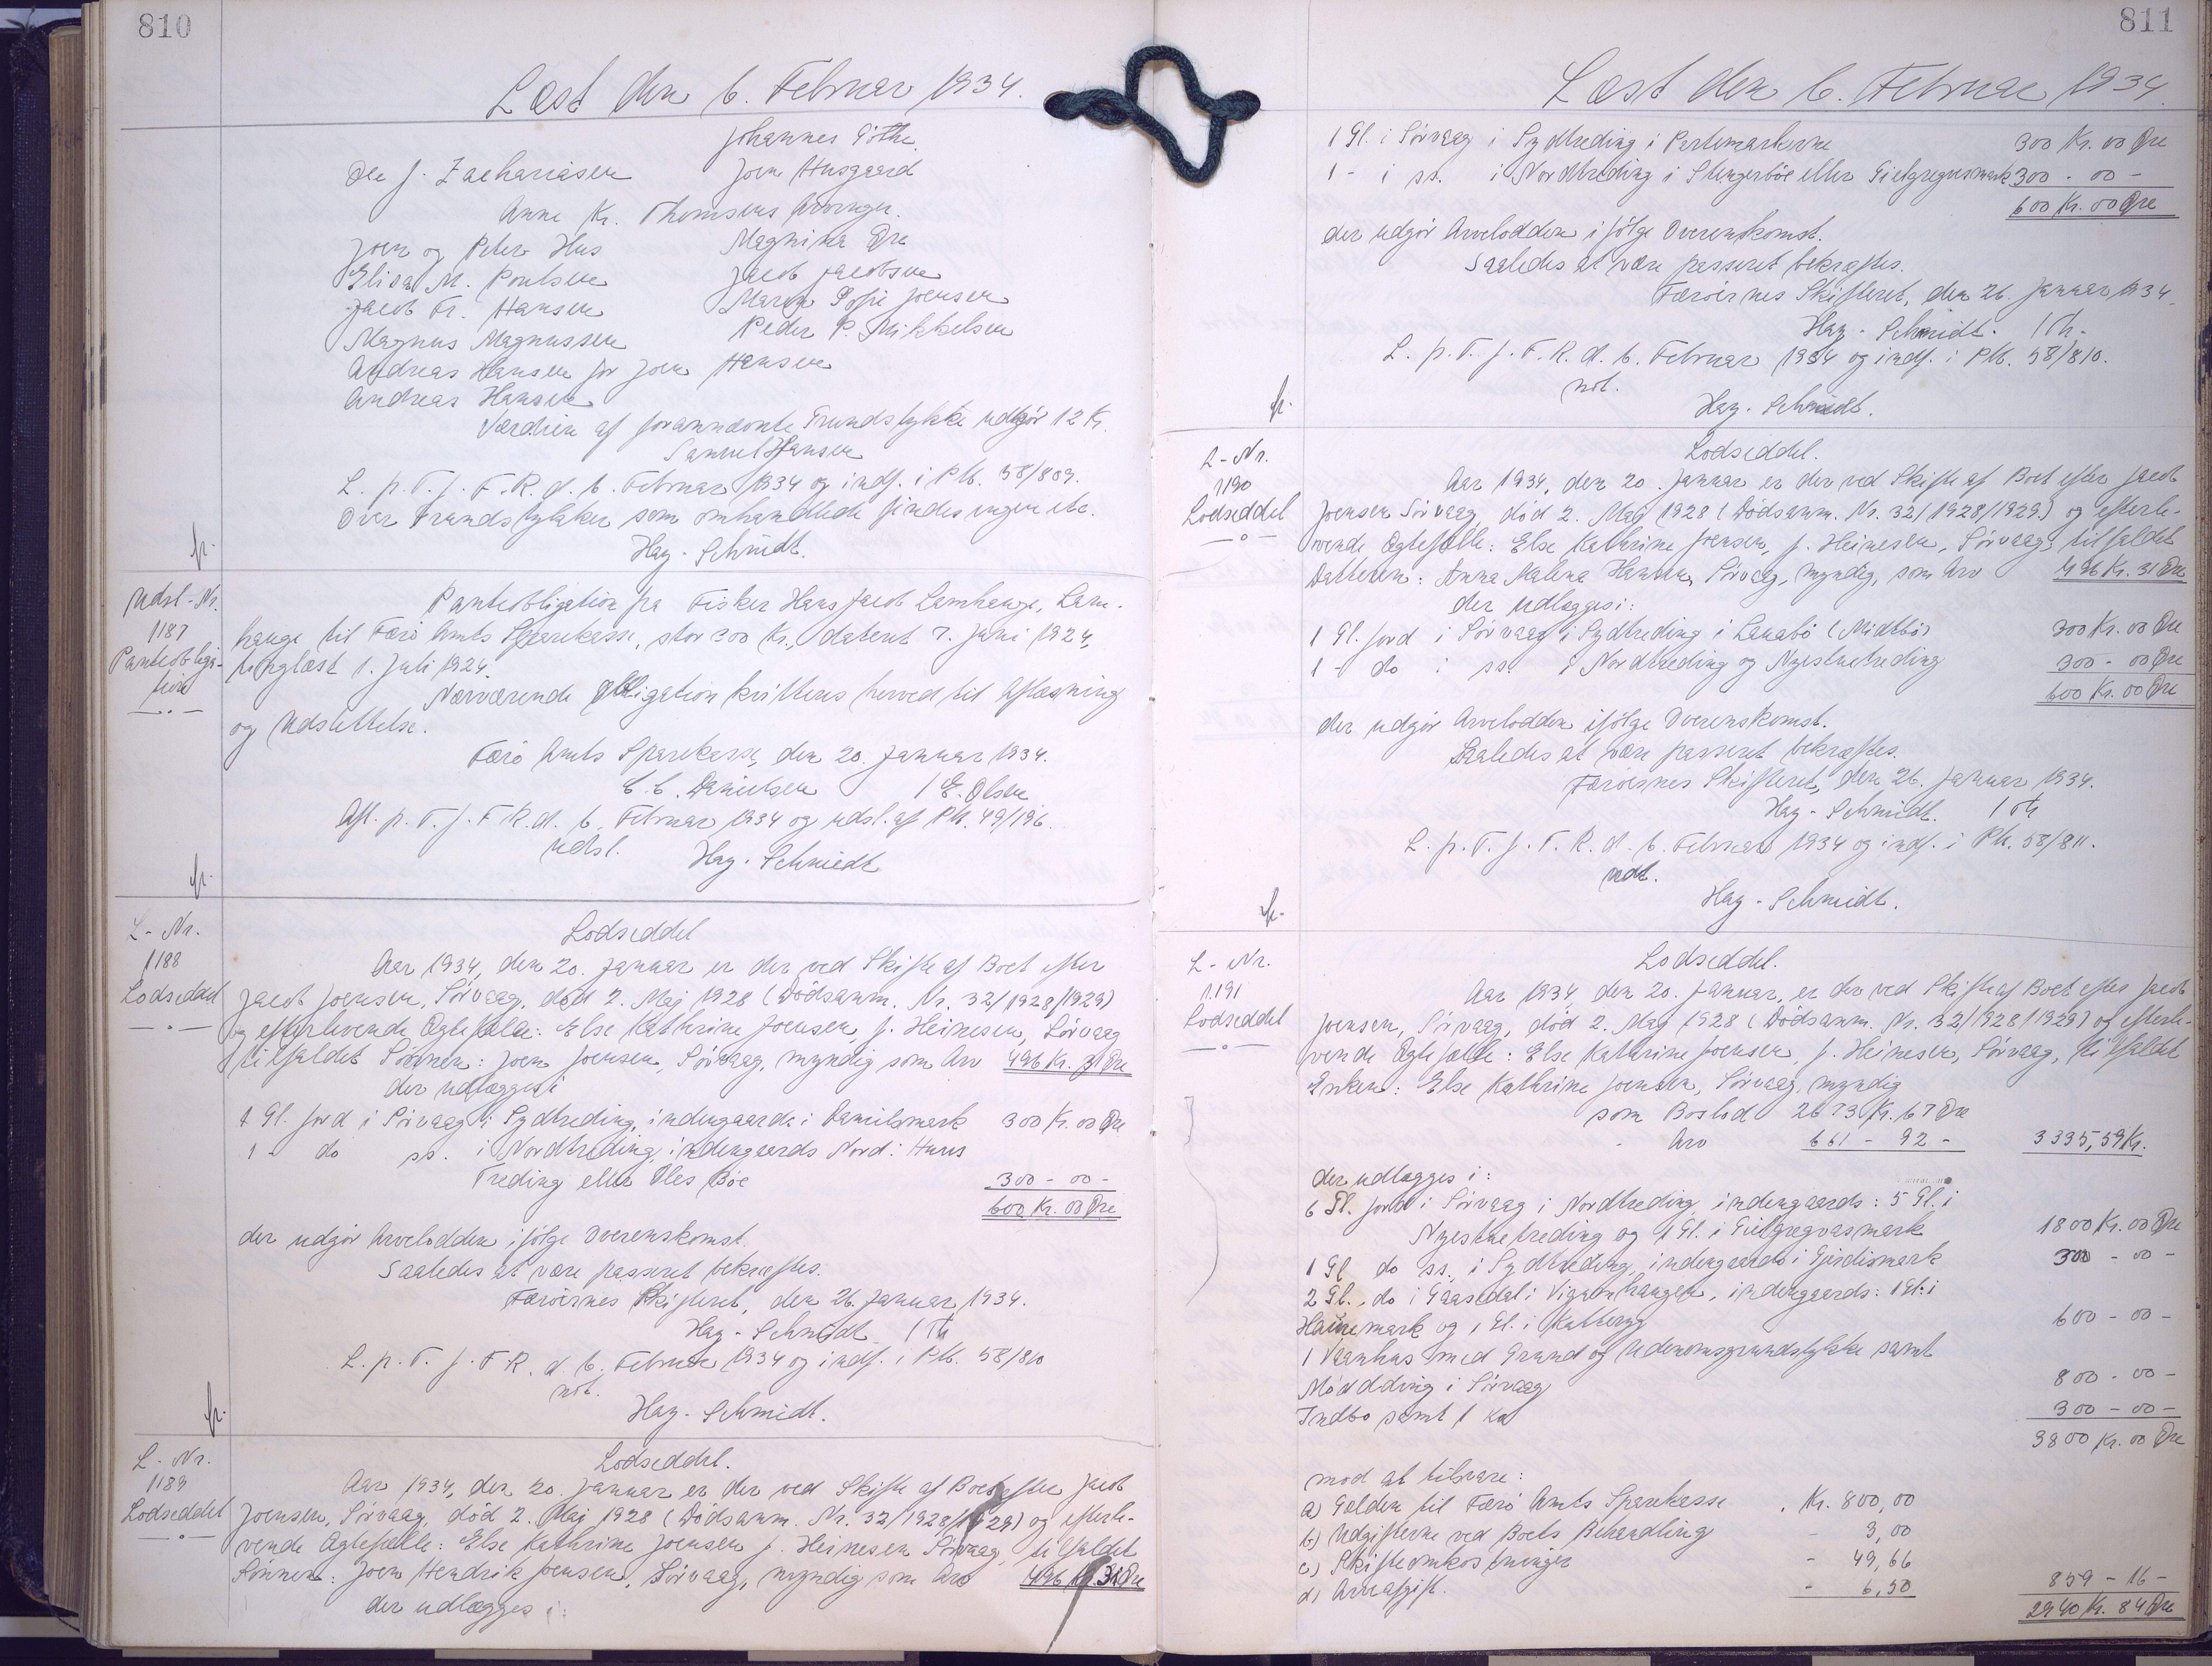 810
Læst den 6. Februar 1934.
Johannes Göthe.
Ole J. Zachariasen Joen Husgaard
Anne Kr. Thomsens Arvinger.
Joen og Peter Hus Magnina Øre
Elisa M. Poulsen Jacob Jacobsen
Jacob Fr. Hansen Maren Sofie Joensen
Magnus Magnussen Peder P. Mikkelsen
Andreas Hansen for Joen Hansen
Andreas Hansen
Værdien af forannævnte Grundstykke udgør 12 Kr.
Samuel Hansen
L. p. T. f. F. R. d. 6. Februar 1934 og indf. i Pb. 58/809.
Over Grundstykker som omhandlede findes ingen etc.
Hay-Schmidt.
fr.
Udsl-Nr.
1187
Panteobliga-
tion
Panteobligation fra Fisker Hans Jacob Lamhauge, Lam-
hauge til Færø Amts Sparekasse, stor 300 Kr., dateret 7. Juni 1924,
tinglæst 1. Juli 1924.
Nærværende Obligation kvitteres herved til Aflæsning
og Udslettelse.
Færø Amts Sparekasse, den 20. Januar 1934.
C. C. Danielsen / E. Olsen
Afl. p. T. f. F. R. d. 6. Februar 1934 og udsl. af Pb. 49/196.
udsl. Hay-Schmidt
fr.
L-Nr.
1188
Lodseddel
Lodseddel
Aar 1934, den 20. Januar er der ved Skifte af Boet efter
Jacob Joensen, Sørvaag, død 2. Maj 1928 (Dødsanm. Nr. 32/1928/1929)
og efterlevende Ægtefælle: Else Kathrine Joensen, f. Heinesen, Sørvaag
tilfaldet Sønnen: Joen Joensen, Sørvaag, myndig som Arv 496 Kr. 31 Øre
der udlægges i
1 Gl. Jord i Sørvaag i Sydtreding, indengaards i Danielsmark 300 Kr. 00 Øre
1 - do ss. i Nordtreding, indengaards Nord i Huus
Treding eller Oles Bøe 300 - 00 -
600 Kr. 00 Øre
der udgør Arvelodden ifølge Overenskomst.
Saaledes at være passeret bekræftes.
Færøernes Skifteret, den 26. Januar 1934.
Hay-Schmidt / Th
L. p. T. f. F. R. d. 6. Februar 1934 og indf. i Pb. 58/810
not.
Hay-Schmidt.
fr.
L-Nr.
1189
Lodseddel
Lodseddel.
Aar 1934, den 20. Januar er der ved Skifte af Boet efter Jacob
Joensen, Sørvaag, død 2. Maj 1928 (Dødsanm. Nr. 32/1928/1929) og efterle-
vende Ægtefælle: Else Kathrine Joensen f. Heinesen Sørvaag, tilfaldet
Sønnen: Joen Hendrik Joensen, Sørvaag, myndig som Arv 496 Kr. 31 Øre
der udlægges i:
811
Læst den 6. Februar 1934.
1 Gl. i Sørvaag i Sydtreding i Partemarkerne 300 Kr. 00 Øre
1 - i ss. i Nordtreding i Stengerbøe eller Gietgregersmark 300 - 00 -
600 Kr. 00 Øre
der udgør Arvelodden ifølge Overenskomst.
Saaledes at være passeret bekræftes.
Færøernes Skifteret, den 26. Januar 1934.
Hay-Schmidt. / Th.
L. p. T. f. F. R. d. 6. Februar 1934 og indf. i Pb. 58/810.
not.
Hay-Schmidt.
fr.
L-Nr.
1190
Lodseddel
Lodseddel.
Aar 1934, den 20. Januar er der ved Skifte af Boet efter Jacob
Joensen Sørvaag, død 2. Maj 1928 (Dødsanm. Nr. 32/1928/1929.) og efterle-
vende Ægtefælle: Else Kathrine Joensen, f. Heinesen, Sørvaag, tilfaldet
Datteren: Anna Malena Hansen, Sørvaag, myndig, som Arv 496 Kr. 31 Øre
der udlægges i:
1 Gl. Jord i Sørvaag i Sydtreding i Lanabø (Midtbø) 300 Kr. 00 Øre
1 - do i ss. i Nordtreding og Nyestuetreding 300 - 00 Øre
600 Kr. 00 Øre
der udgør Arvelodden ifølge Overenskomst.
Saaledes at være passeret bekræftes.
Færøernes Skifteret, den 26. Januar 1934.
Hay-Schmidt. / Th
L. p. T. f. F. R. d. 6. Februar 1934 og indf. i Pb. 58/811.
not.
Hay-Schmidt.
fr.
L-Nr.
1191
Lodseddel
Lodseddel.
Aar 1934, den 20. Januar, er der ved Skifte af Boet efter Jacob
Joensen, Sørvaag, død 2. Maj 1928 (Dødsanm. Nr. 32/1928/1929) og efterle-
vende Ægtefælle: Else Kathrine Joensen, f. Heinesen, Sørvaag, tilfaldet
Enken: Else Kathrine Joensen, Sørvaag, myndig
som Boslod 2673 Kr. 67 Øre
- Arv 661 - 92 - 3335,59 Kr.
der udlægges i:
6 Gl. Jord i Sørvaag i Nordtreding, indengaards: 5 Gl. i
Nyestuetreding og 1 Gl. i Gietgregersmark 1800 Kr. 00 Øre
1 Gl. do ss., i Sydtreding, indengaards i Gjerdismark 300 - 00 -
2 Gl. do i Gaasedal i Vigarhaugen, indengaards: 1 Gl. i
Hainemark og 1 Gl. i 600 - 00 -
1 Vaanhus med Grund og Udenomsgrundstykke samt
Mødding i Sørvaag 800 - 00 -
Indbo samt 1 Ko 300 - 00 -
3800 Kr. 00 Øre
mod at tilsvare:
a) Gælden til Færø Amts Sparekasse . Kr. 800,00
b) Udgifterne ved Boets Behandling - 3,00
c) Skifteomkostninger - 49,66
d) Arveafgift. - 6,50 859 - 16 -
2940 Kr. 84 Øre